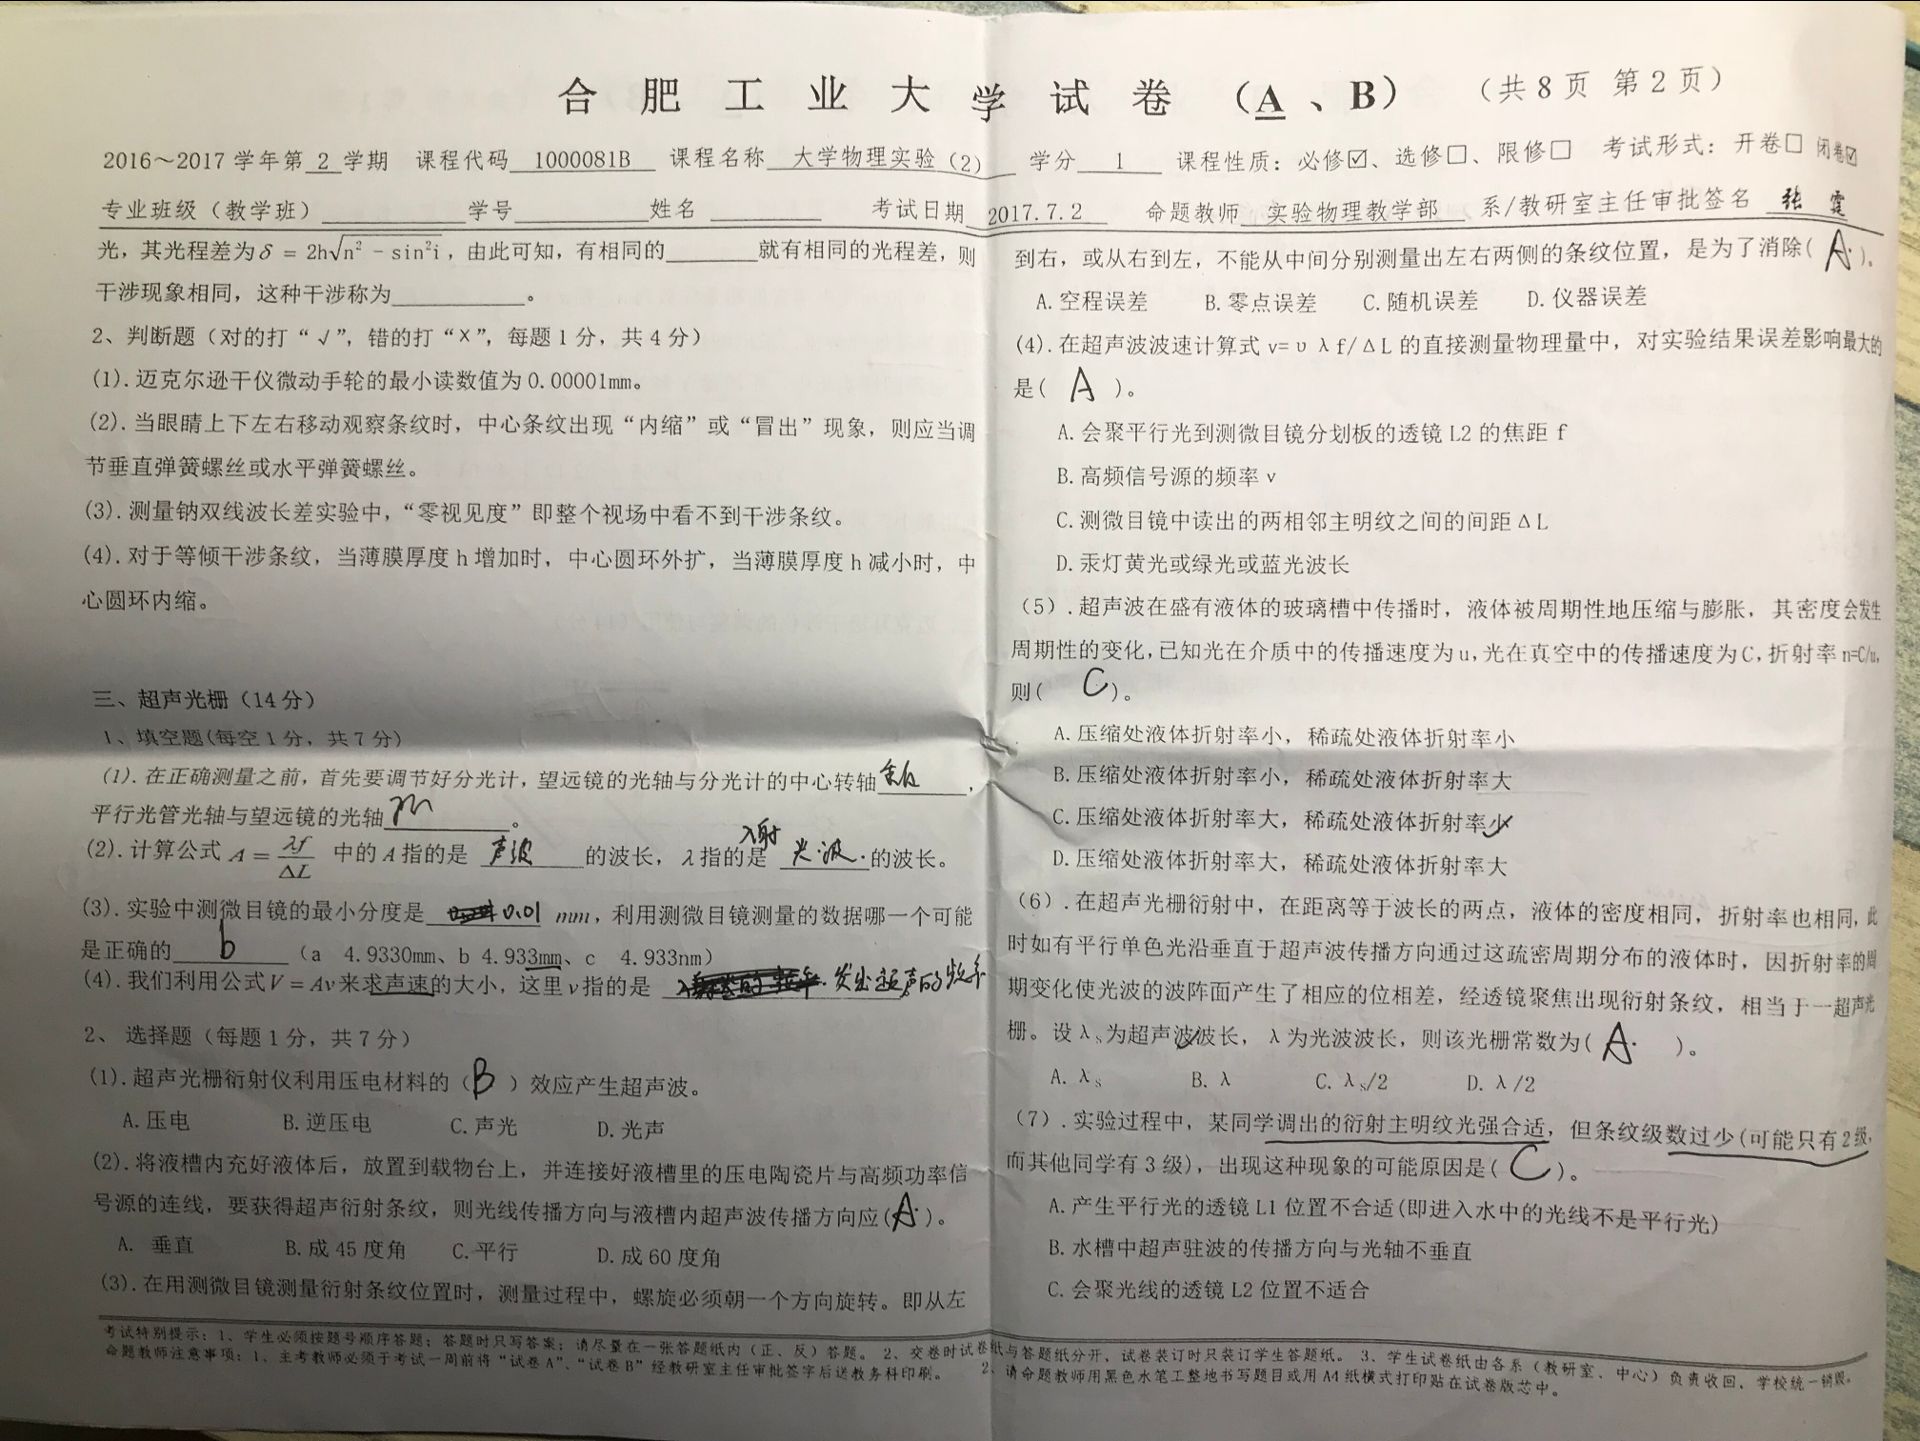 合肥工业大学试卷（A、B） （共8页 第2页）
2016～2017学年第 2 学期 课程代码 1000081B 课程名称 大学物理实验（2） 学分 1 课程性质：必修☑、选修☐、限修☐ 考试形式：开卷☐ 闭卷☑
专业班级（教学班） 学号 姓名 考试日期 2017.7.2 命题教师 实验物理教学部 系/教研室主任审批签名 张霆
光，其光程差为δ = 2h√n² - sin²i，由此可知，有相同的________就有相同的光程差，则
干涉现象相同，这种干涉称为____________。
2、判断题（对的打“√”，错的打“×”，每题1分，共4分）
(1).迈克尔逊干仪微动手轮的最小读数值为0.00001mm。
(2).当眼睛上下左右移动观察条纹时，中心条纹出现“内缩”或“冒出”现象，则应当调
节垂直弹簧螺丝或水平弹簧螺丝。
(3).测量钠双线波长差实验中，“零视见度”即整个视场中看不到干涉条纹。
(4).对于等倾干涉条纹，当薄膜厚度h增加时，中心圆环外扩，当薄膜厚度h减小时，中
心圆环内缩。
三、超声光栅（14分）
1、填空题(每空1分，共7分)
(1).在正确测量之前，首先要调节好分光计，望远镜的光轴与分光计的中心转轴垂直，
平行光管光轴与望远镜的光轴________。
(2).计算公式 A = λf/ΔL 中的A指的是 声波 的波长，λ指的是 入射 光波. 的波长。
(3).实验中测微目镜的最小分度是 0.01 mm，利用测微目镜测量的数据哪一个可能
是正确的 b （a 4.9330mm、b 4.933mm、c 4.933nm）
(4).我们利用公式V = Av来求声速的大小，这里v指的是 发出超声的频率
2、 选择题（每题1分，共7分）
(1).超声光栅衍射仪利用压电材料的（B）效应产生超声波。
A.压电 B.逆压电 C.声光 D.光声
(2).将液槽内充好液体后，放置到载物台上，并连接好液槽里的压电陶瓷片与高频功率信
号源的连线，要获得超声衍射条纹，则光线传播方向与液槽内超声波传播方向应(A.)。
A. 垂直 B.成45度角 C.平行 D.成60度角
(3).在用测微目镜测量衍射条纹位置时，测量过程中，螺旋必须朝一个方向旋转。即从左
到右，或从右到左，不能从中间分别测量出左右两侧的条纹位置，是为了消除(A.)。
A.空程误差 B.零点误差 C.随机误差 D.仪器误差
(4).在超声波波速计算式 v=υλf/ΔL 的直接测量物理量中，对实验结果误差影响最大的
是( A )。
A.会聚平行光到测微目镜分划板的透镜L2的焦距 f
B.高频信号源的频率 v
C.测微目镜中读出的两相邻主明纹之间的间距ΔL
D.汞灯黄光或绿光或蓝光波长
（5）.超声波在盛有液体的玻璃槽中传播时，液体被周期性地压缩与膨胀，其密度会发生
周期性的变化,已知光在介质中的传播速度为u,光在真空中的传播速度为C,折射率n=C/u,
则( C )。
A.压缩处液体折射率小，稀疏处液体折射率小
B.压缩处液体折射率小，稀疏处液体折射率大
C.压缩处液体折射率大，稀疏处液体折射率小
D.压缩处液体折射率大，稀疏处液体折射率大
（6）.在超声光栅衍射中，在距离等于波长的两点，液体的密度相同，折射率也相同，此
时如有平行单色光沿垂直于超声波传播方向通过这疏密周期分布的液体时，因折射率的周
期变化使光波的波阵面产生了相应的位相差，经透镜聚焦出现衍射条纹，相当于一超声光
栅。设λs为超声波波长，λ为光波波长，则该光栅常数为( A. )。
A. λs B. λ C. λs/2 D. λ/2
（7）.实验过程中，某同学调出的衍射主明纹光强合适，但条纹级数过少(可能只有2级，
而其他同学有3级)，出现这种现象的可能原因是( C )。
A.产生平行光的透镜L1位置不合适(即进入水中的光线不是平行光)
B.水槽中超声驻波的传播方向与光轴不垂直
C.会聚光线的透镜L2位置不适合
考试特别提示：1、学生必须按题号顺序答题；答题时只写答案；请尽量在一张答题纸内（正、反）答题。 2、交卷时试卷纸与答题纸分开，试卷装订时只装订学生答题纸。 3、学生试卷纸由各系（教研室、中心）负责收回，学校统一销毁。
命题教师注意事项：1、主考教师必须于考试一周前将“试卷A”、“试卷B”经教研室主任审批签字后送教务科印刷。 2、请命题教师用黑色水笔工整地书写题目或用A4纸横式打印贴在试卷版芯中。